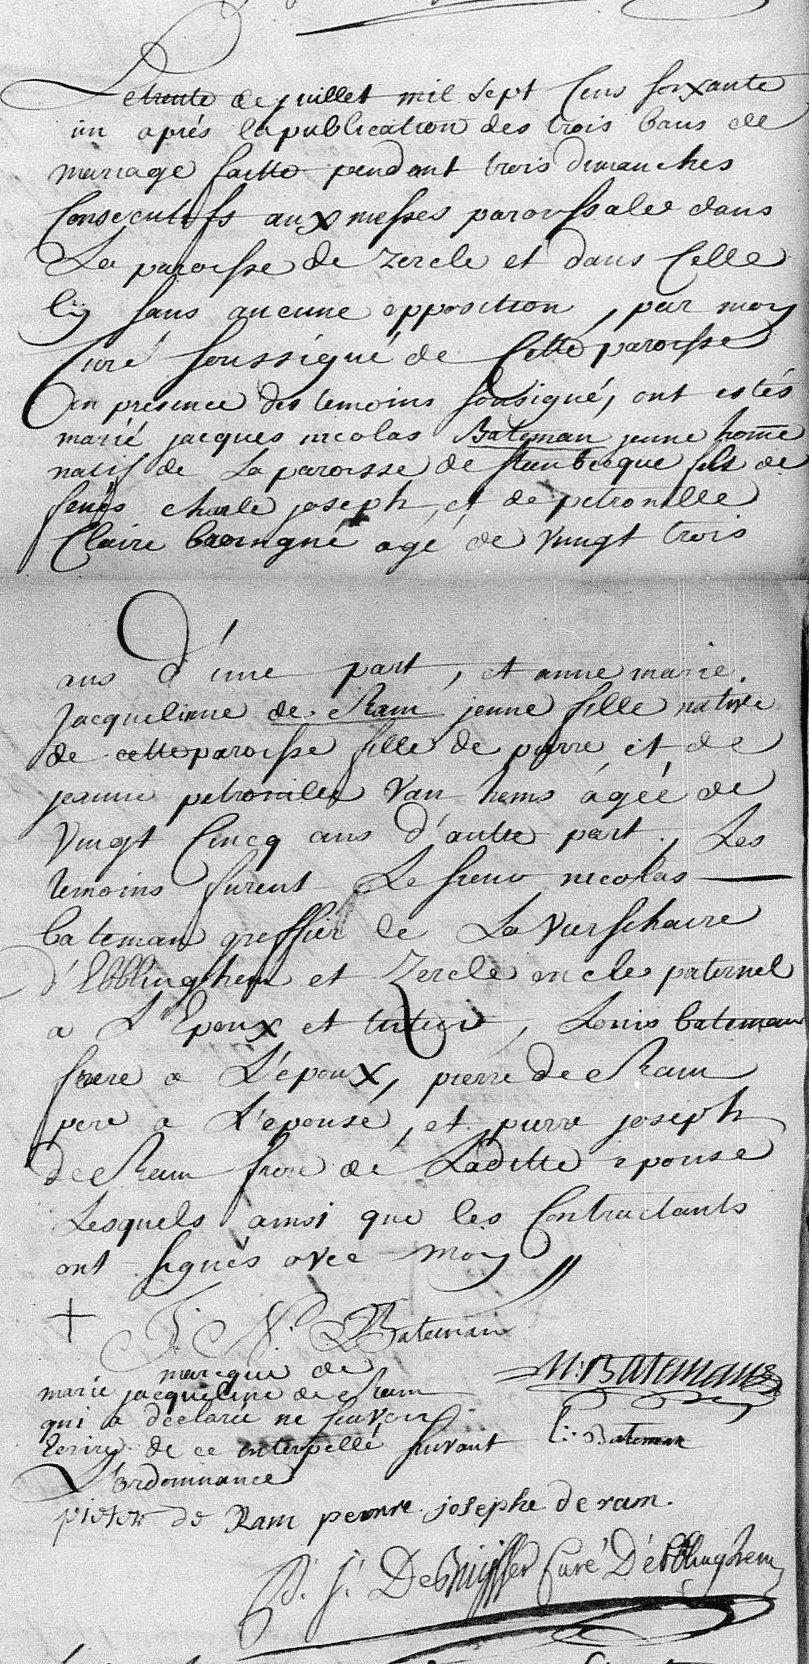 Le trente de juillet mil sept Cens soixante
un aprés la publication des trois bans de
mariage faitte pendant trois dimanches
Consecutifs aux messes paroissales dans
La paroisse de zercle et dans Celle
Cy sans aucune opposition, par moy
Curé soussigné de Cette paroisse
en presence des temoins sousigné, ont estés
marié jacques nicolas Bateman jeune home
natif de La paroisse de stenbecque fils de
feus charle joseph, et de petronille
Claire agé de vingt trois
ans d'une part, et anne marie
Jacquelinne de Ram jeune fille native
de cette paroisse fille de pierre et de
jeanne petronille Van hems ágeé de
vingt Cincq ans d'autre part, Les
temoins furent Le sieur nicolas
bateman greffier de La vierschaire
d'Ebblinghem et Zercle oncle paternel
a L'Epoux et tuteur, Louis bateman
frere a L'époux, pierre de Ram
pere a L'epouse, et pierre joseph
de Ram frere de Laditte epouse
Lesquels ainsi que les Contractants
ont signés avec moy
J: N: Bateman
marcque de
marie jacqueline de Ram
qui a déclarée ne scavoir
Ecrire de ce interpellé suivant
L'ordonnance
N: Bateman
L: Bateman
pieter de Ram pierre josephe de ram.
P. J. DeBuysser Curé D'ébblinghem